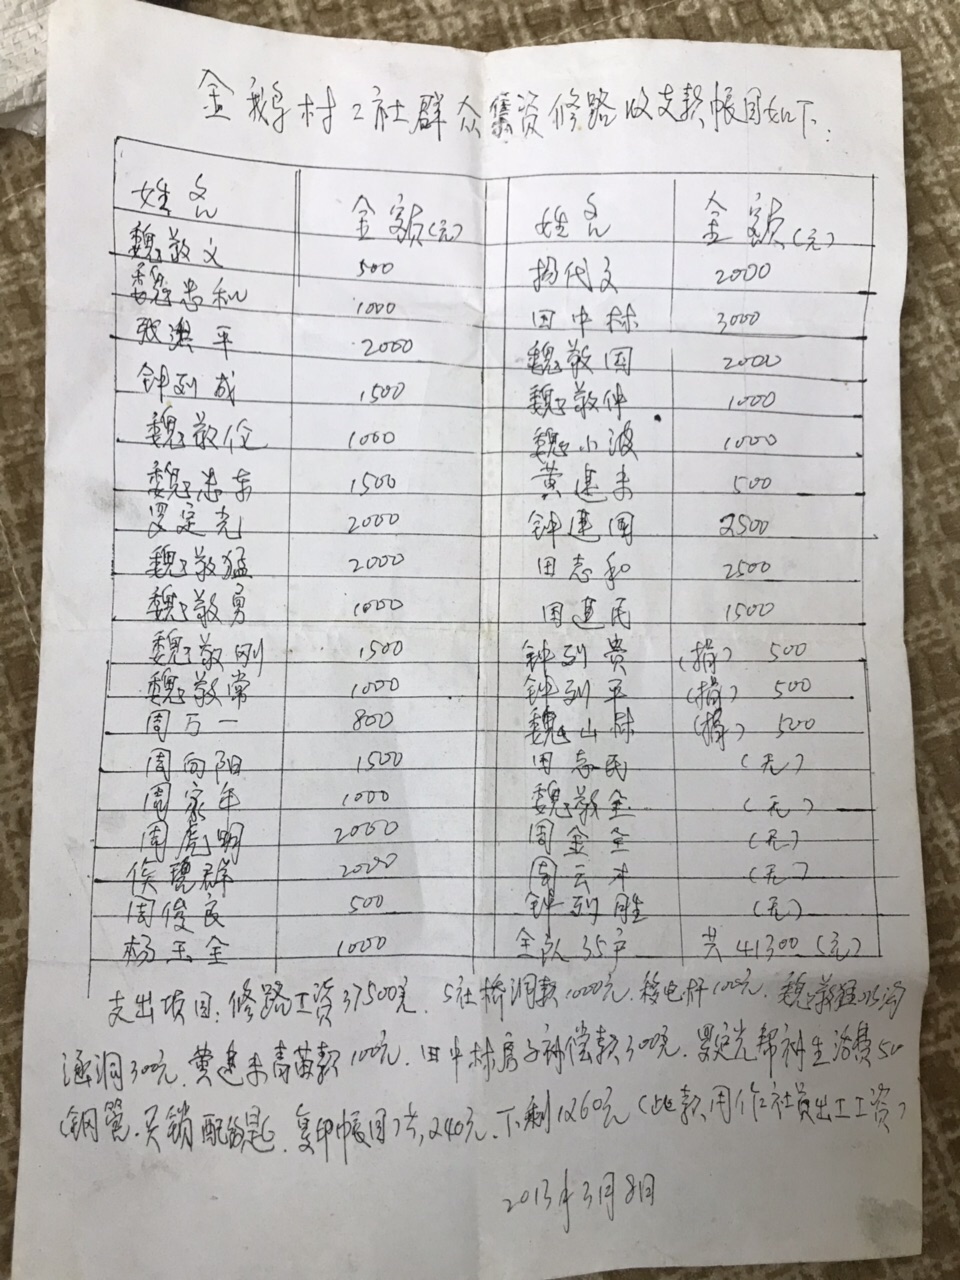 金鹅村2社群众集资修路收支款帐目如下:
姓名 金额(元) 姓名 金额(元)
魏敬文 500 杨代文 2000
魏忠和 1000 田中林 3000
张洪平 2000 魏敬国 2000
钟列成 1500 魏敬仲 1000
魏敬伦 1000 魏小波 1000
魏忠东 1500 黄建未 500
罗定光 2000 钟建国 2500
魏敬猛 2000 田志和 2500
魏敬勇 1000 田建民 1500
魏敬刚 1500 钟列贵 (捐) 500
魏敬常 1000 钟列平 (捐) 500
周万一 800 魏山林 (捐) 500
周向阳 1500 田志民 (无)
周家年 1000 魏敬全 (无)
周虎明 2000 周金全 (无)
侯琼群 2000 周云才 (无)
周俊良 500 钟列胜 (无)
杨玉金 1000 全队35户 共41300(元)
支出项目:修路工资37500元. 5社桥洞款1000元. 移电杆100元. 魏敬猛水沟
涵洞300元. 黄建未青苗款100元. 田中林房子补偿款300元. 罗定光帮补生活费50
(钢管. 买锁配钥匙. 复印帐目)共240元. 下剩1260元(此款用作社员出工工资)
2013年3月8日